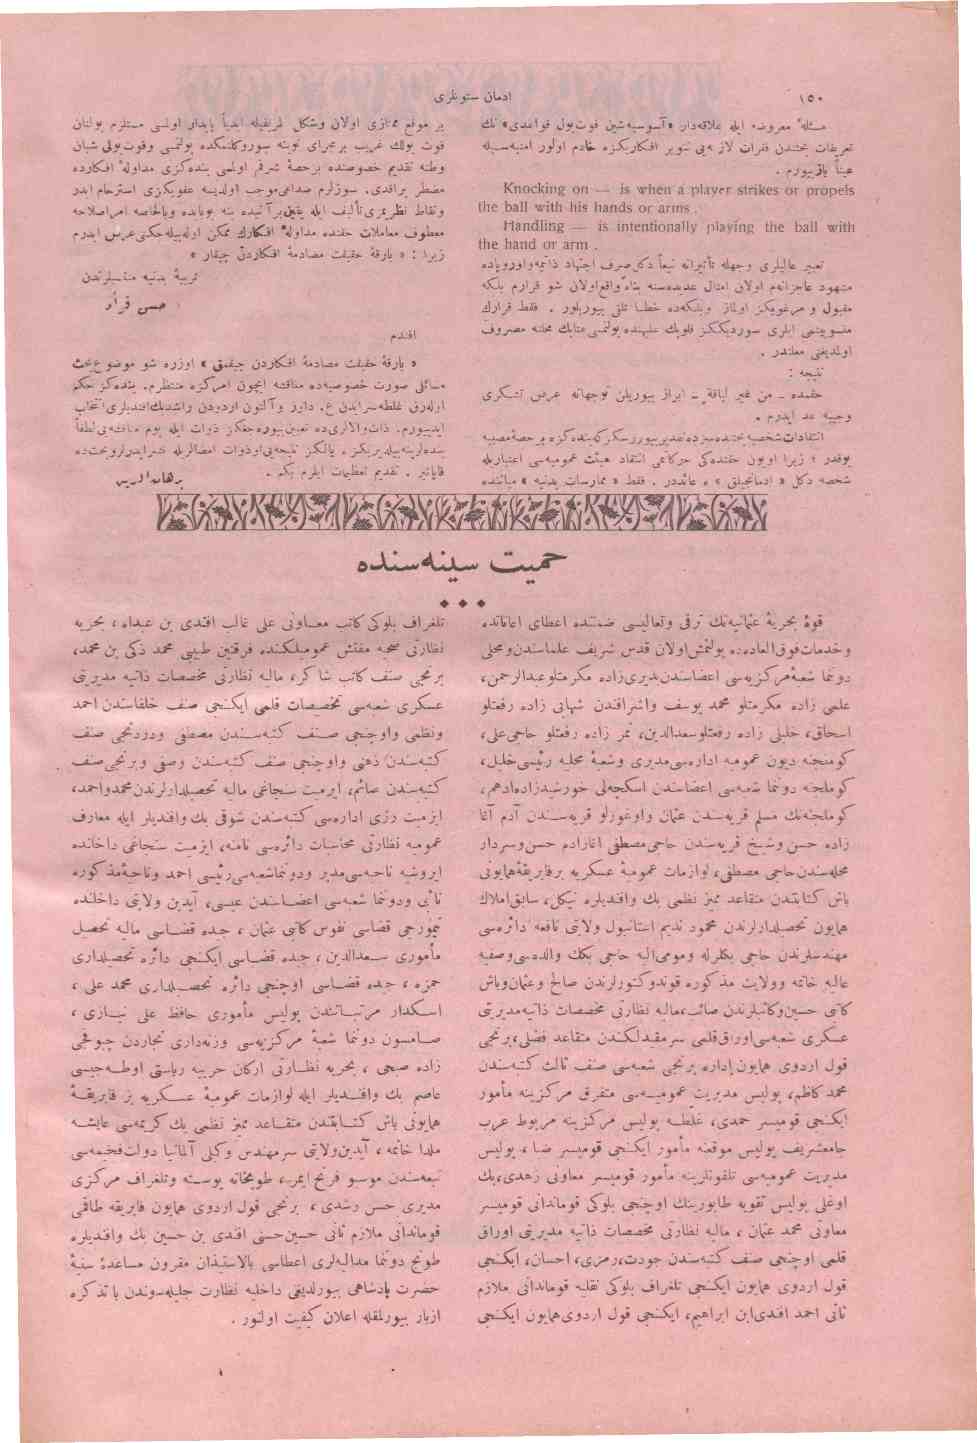 ١٥٠
ادمان ستونلری
مسئلهٔ معروضه ایله علاقه‌دار «آسوسیه‌شین فوت‌بول قواعدی» نك
تعریفات بحثندن فقرات لازمه‌یی تنویر افکاریکزه خادم اولور امنیه‌سیله
عیناً یازیورم .
Knocking on — is when a player strikes or propels
the ball with his hands or arms .
Handling — is intentionally playing the ball with
the hand or arm .
تعبیر عالیلری وجهله تأثیراته تبعاً دکل صرف اجتهاد ذاتیمه واوروپاده
مشهود عاجزانه‌م اولان امثال عدیده‌سنه بناءً واقع اولان شو قرارم بلکه
مقبول و مرغوبکز اولماز وبلکه‌ده خطا تلقی بیوریلور . فقط قرارك
منسوبیتمی ایلری سوردیككز قلوبك علیهنده بولنمسی متابك محلنه مصروف
اولدیغنی معلندر .
نتیجه :
حقمده ـ من غیر لیاقة ـ ابراز بیوریلن توجهاته عرض تشکری
وجیبه عد ایدرم .
انتقادات شخصیه بحثنده سزده تقدیر بیوررسکز که بنده‌کزه بر حصهٔ مصیبه
یوقدر ؛ زیرا اویون حقنده‌کی حرکاتمی انتقاد هیئت عمومیه‌سی اعتباریله
شخصه دکل « ادمانجیلق » ه عائددر . فقط « ممارسات بدنیه » میاننده
بر موقع ممتازی اولان وشکل ظریفیله ابدیاً پایدار اولمسی مستلزم بولنان
فوت بولك غریب بر مجرای خونینه سوروکلنمکده بولنمسی وفوت‌بولی شبان
وطنه تقدیم خصوصنده بر حصهٔ شرفم اولمسی بنده‌کزی مداولهٔ افکارده
مضطر براقدی. سوزلرم صداعی‌موجب اولدیسه عفویکزی استرحام ایدر
ونقاط نظریمزی تألیف ایله یقین بر آتیده ینه بوبابده وبالخاصه امر اصلاحه
معطوف معاملات حقنده مداولهٔ افکارك ممکن اوله‌بیله‌جکنی عرض ایدرم
زیرا : « بارقهٔ حقیقت مصادمهٔ افکاردن چیقار »
تربیهٔ بدنیه منتسبلرندن
حسن فراد
افندم
« بارقهٔ حقیقت مصادمهٔ افکاردن چیقمق » اوزره شو موضوع بحث
مسائلی صورت خصوصیه‌ده مناقشه ایچون امرکزه منتظرم. بنده‌کز حکم
اوله‌رق غلطه‌سرایدن ع. دانیز وآلتون اردودن راشدبك‌افندیلری انتخاب
ایدییورم. ذات والالری‌ده تعیین بیوره‌جغکز ذوات ایله یوم مناقشه‌یی لطفاً
بنده‌لرینه بیلدیریکز . یالکز نتیجه‌یی او ذوات امضالریله نشر ایدرلر وبحث‌ده
قاپانیر . تقدیم تعظیمات ایلرم بکم .
برهان‌الدین
حمیت سینه‌سنده
قوهٔ بحریهٔ عثمانیه‌نك ترقی وتعالیسی ضمننده اعطای اعاناتده
وخدمات فوق‌العاده‌ده بولنمش اولان قدس شریف علماسندن ومحلی
دوننما شعبهٔ مرکزیه‌سی اعضاسندن بدیری زاده مکرمتلو عبدالرحمن،
علمی زاده مکرمتلو محمد یوسف واشرافندن شهابی زاده رفعتلو
اسحاق، خلیلی زاده رفعتلو سعدالدین، نمر زاده رفعتلو حاجی علی،
کوملجنه دیون عمومیه اداره‌سی مدیری وشعبهٔ محلیه رئیسی خلیل،
کوملجنه دوننما شعبه‌سی اعضاسندن اسکچه‌لی خورشیدزاده ادهم،
کوملجنه‌نك مسلم قریه‌سندن عثمان واوغورلو قریه‌سندن آدم آغا
زاده حسن وشیخ قریه‌سندن حاجی مصطفی اغازاده حسن وسردار
محله‌سندن حاجی مصطفی، لوازمات عمومیهٔ عسکریه بر فابریقهٔ همایونی
باش کتابتندن متقاعد ممیز نظمی بك وافندیلره نیکل، سابق املاك
همایون تحصیلدارلرندن محمود ندیم استانبول ولایتی نافعه دائره‌سی
مهندسلرندن حاجی بکلرله ومومی‌الیه حاجی بکك والده‌سی وصفیه
عالیه خانمه وولایت مذکوره قوندوکتورلرندن صالح وعثمان وباش
کاتبی حسین وکاتبلرندن صائب، مالیه نظارتی مخصصات ذاتیه مدیریتی
عسکری شعبه‌سی اوراق قلمی سرمقیدلکندن متقاعد فضلی، برنجی
قول اردوی همایون اداره برنجی شعبه‌سی صنف ثالث کتبه‌سندن
محمد کاظم، پولیس مدیریت عمومیه‌سی متفرق مرکزینه مأمور
ایکنجی قومیسر حمدی، غلطه پولیس مرکزینه مربوط عرب
جامعشریف پولیس موقعنه مأمور ایکنجی قومیسر ضیا، پولیس
مدیریت عمومیه‌سی تلفونلرینه مأمور قومیسر معاونی زهدی، بك
اوغلی پولیس تقویه طابورینك اوچنجی بلوکی قوماندانی قومیسر
معاونی محمد عثمان ، مالیه نظارتی مخصصات ذاتیه مدیریتی اوراق
قلمی اوچنجی صنف کتبه‌سندن جودت، رمزی، احسان، ایکنجی
قول اردوی همایون ایکنجی تلغراف بلوکی نقلیه قوماندانی ملازم
ثانی احمد افندی ابن ابراهیم، ایکنجی قول اردوی همایون ایکنجی
تلغراف بلوکی کاتب معاونی علی غالب افندی بن عبداه ، بحریه
نظارتی صحیه مفتش عمومیلکنده فرقتین طبیبی محمد ذکی بن محمد،
برنجی صنف کاتب شاکر، مالیه نظارتی مخصصات ذاتیه مدیریتی
عسکری شعبه‌سی تخصیصات قلمی ایکنجی صنف خلفاسندن احمد
ونظمی واوچنجی صنف کتبه‌سندن مصطفی ودردنجی صنف
کتبه‌سندن ذهنی واوچنجی صنف کتبه‌سندن وصفی وبرنجی صنف
کتبه‌سندن صائم، ایزمیت سنجاغی مالیه تحصیلدارلرندن محمد واحمد،
ایزمیت رژی اداره‌سی کتبه‌سندن شوقی بك وافندیلر ایله معارف
عمومیه نظارتی محاسبات دائره‌سی نامنه، ایزمیت سنجاغی داخلنده
ایروشیه ناحیه‌سی مدیر ودوننما شعبه‌سی رئیسی احمد وناحیهٔ مذکوره
نائبی ودوننما شعبه‌سی اعضاسندن عیسی، آیدین ولایتی داخلنده
تیمورجی قضاسی نفوس کاتبی عثمان ، جده قضاسی مالیه تحصیل
مأموری سعدالدین ، جده قضاسی ایکنجی دائره تحصیلداری
حمزه ، جده قضاسی اوچنجی دائره تحصیلداری محمد علی ،
اسکدار مرتباتندن پولیس مأموری حافظ علی نیازی ،
صامسون دوننما شعبهٔ مرکزیه‌سی وزنه‌داری تجاردن چبوقجی
زاده صبحی ، بحریه نظارتی ارکان حربیه ریاستی اوطه‌جیسی
عاصم بك وافندیلر ایله لوازمات عمومیهٔ عسکریه بز فابریقهٔ
همایونی باش کتابتندن متقاعد ممیز نظمی بك کریمه‌سی عایشه
ملدا خانمه ، آیدین ولایتی سرمهندس وکیلی آلمانیا دولت فخیمه‌سی
تبعه‌سندن موسیو فریج ایمر، طوپخانه پوسته وتلغراف مرکزی
مدیری حسن رشدی ، برنجی قول اردوی همایون فابریقه طاقمی
قوماندانی ملازم ثانی حسین حسنی افندی بن حسین بك وافندیلره
طونج دوننما مدالیه‌لری اعطاسی بالاستیذان مقرون مساعدهٔ سنیهٔ
حضرت پادشاهی بیورلدیغی داخلیه نظارت جلیله‌سندن با تذکره
ازبار بیورلمقله اعلان کیفیت اولنور .